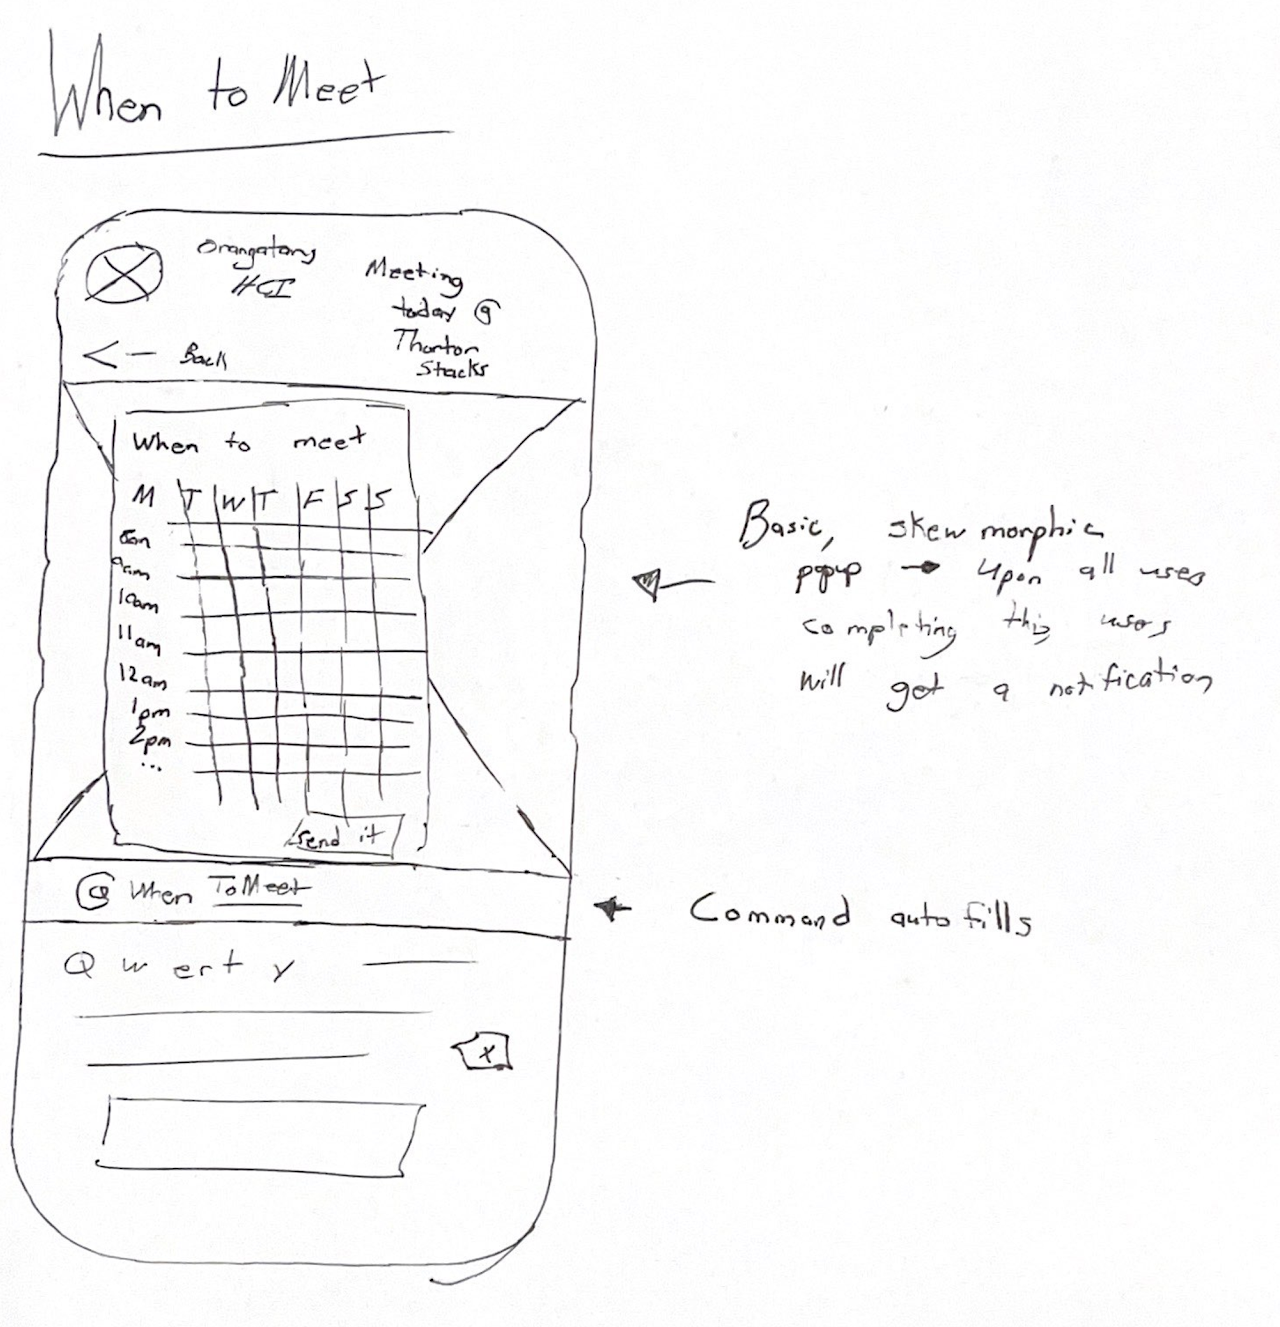 When to Meet
Orangatang
HCI
Meeting
today @
Thorton
Stacks
<- Back
When to meet
M T W T F S S
8am
9am
10am
11am
12am
1pm
2pm
...
Send it
@ When ToMeet
Qwerty
x
Basic, skewmorphic
popup → Upon all users
completing this users
will get a notification
Command autofills